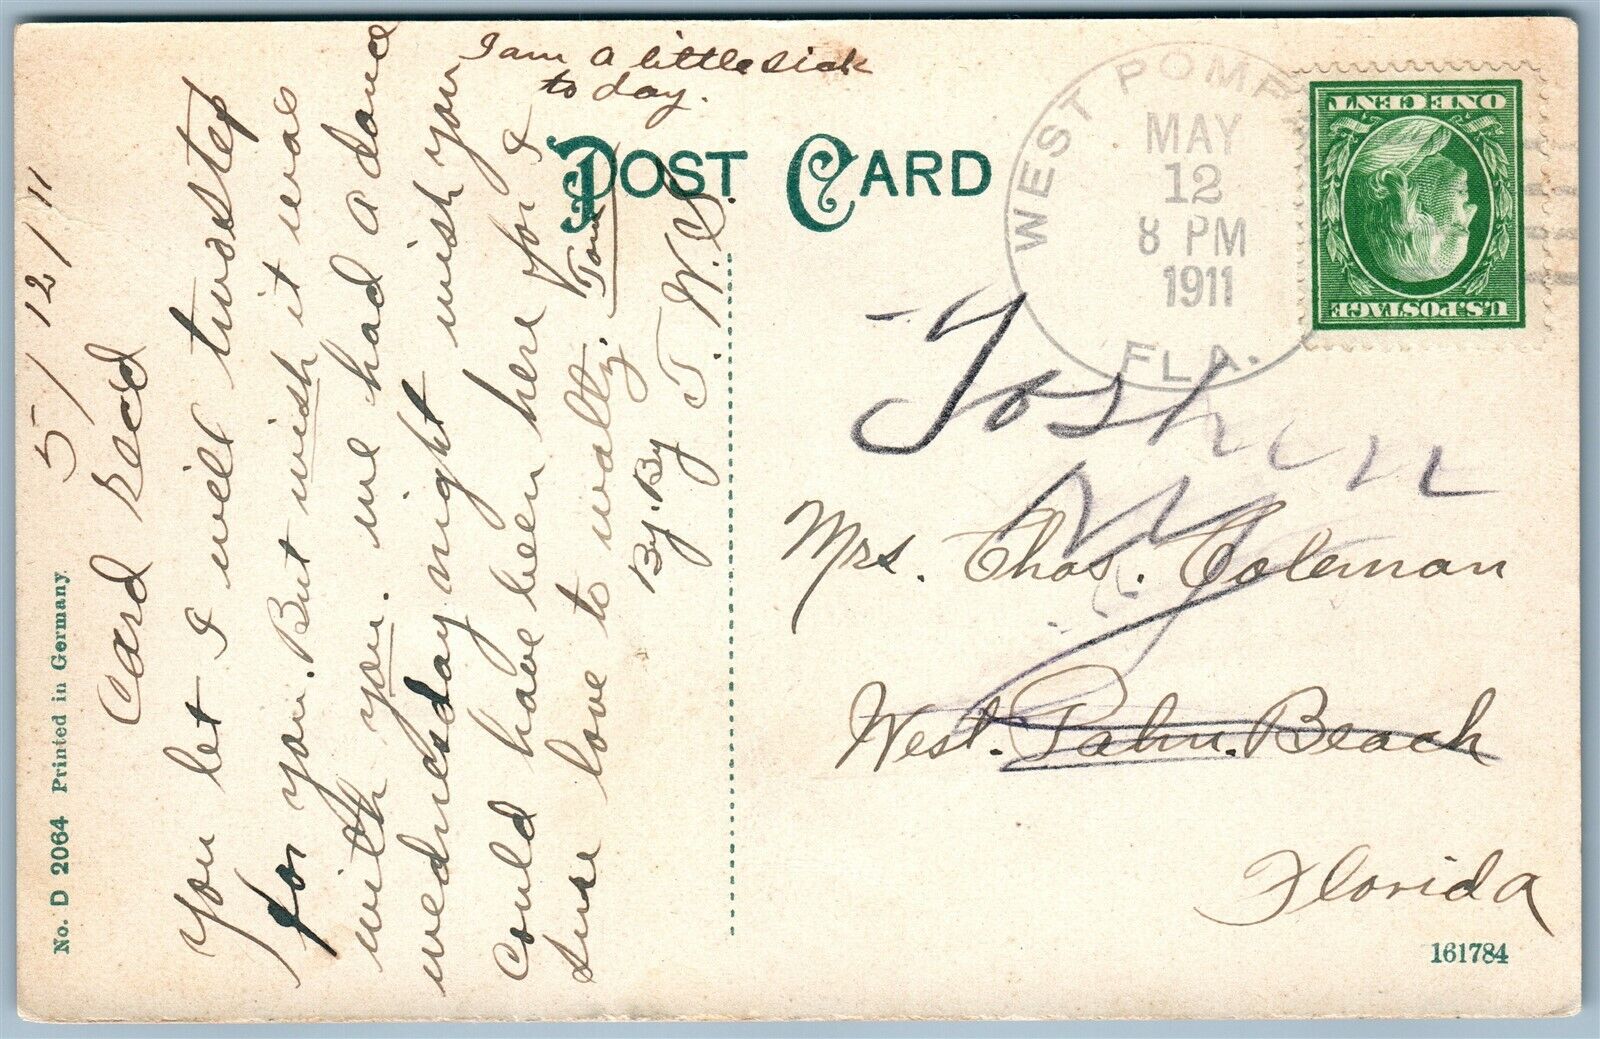 5/12/11
Card recd
You bet I will twostep
for you. But wish it was
with you. we had a dance
wednesday night wish you
could have been here for I
sure love to waltz.
By. By
T. W. S.
I am a little sick
to day.
POST CARD
WEST POMP
MAY
12
8 PM
1911
FLA.
U.S. POSTAGE
ONE CENT
Goshen
NY
Mrs. Chas. Coleman
West. Palm. Beach
Florida
No. D 2064 Printed in Germany.
161784